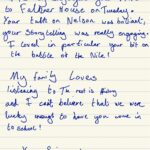 to Falkner House on Tuesday.
Your talk on Nelson was brilliant,
your storytelling was really engaging.
I loved in particular your bit on
the battle of the Nile!
My family loves
listening to The rest is History
and I can't believe that we were
lucky enough to have you want in
to school!